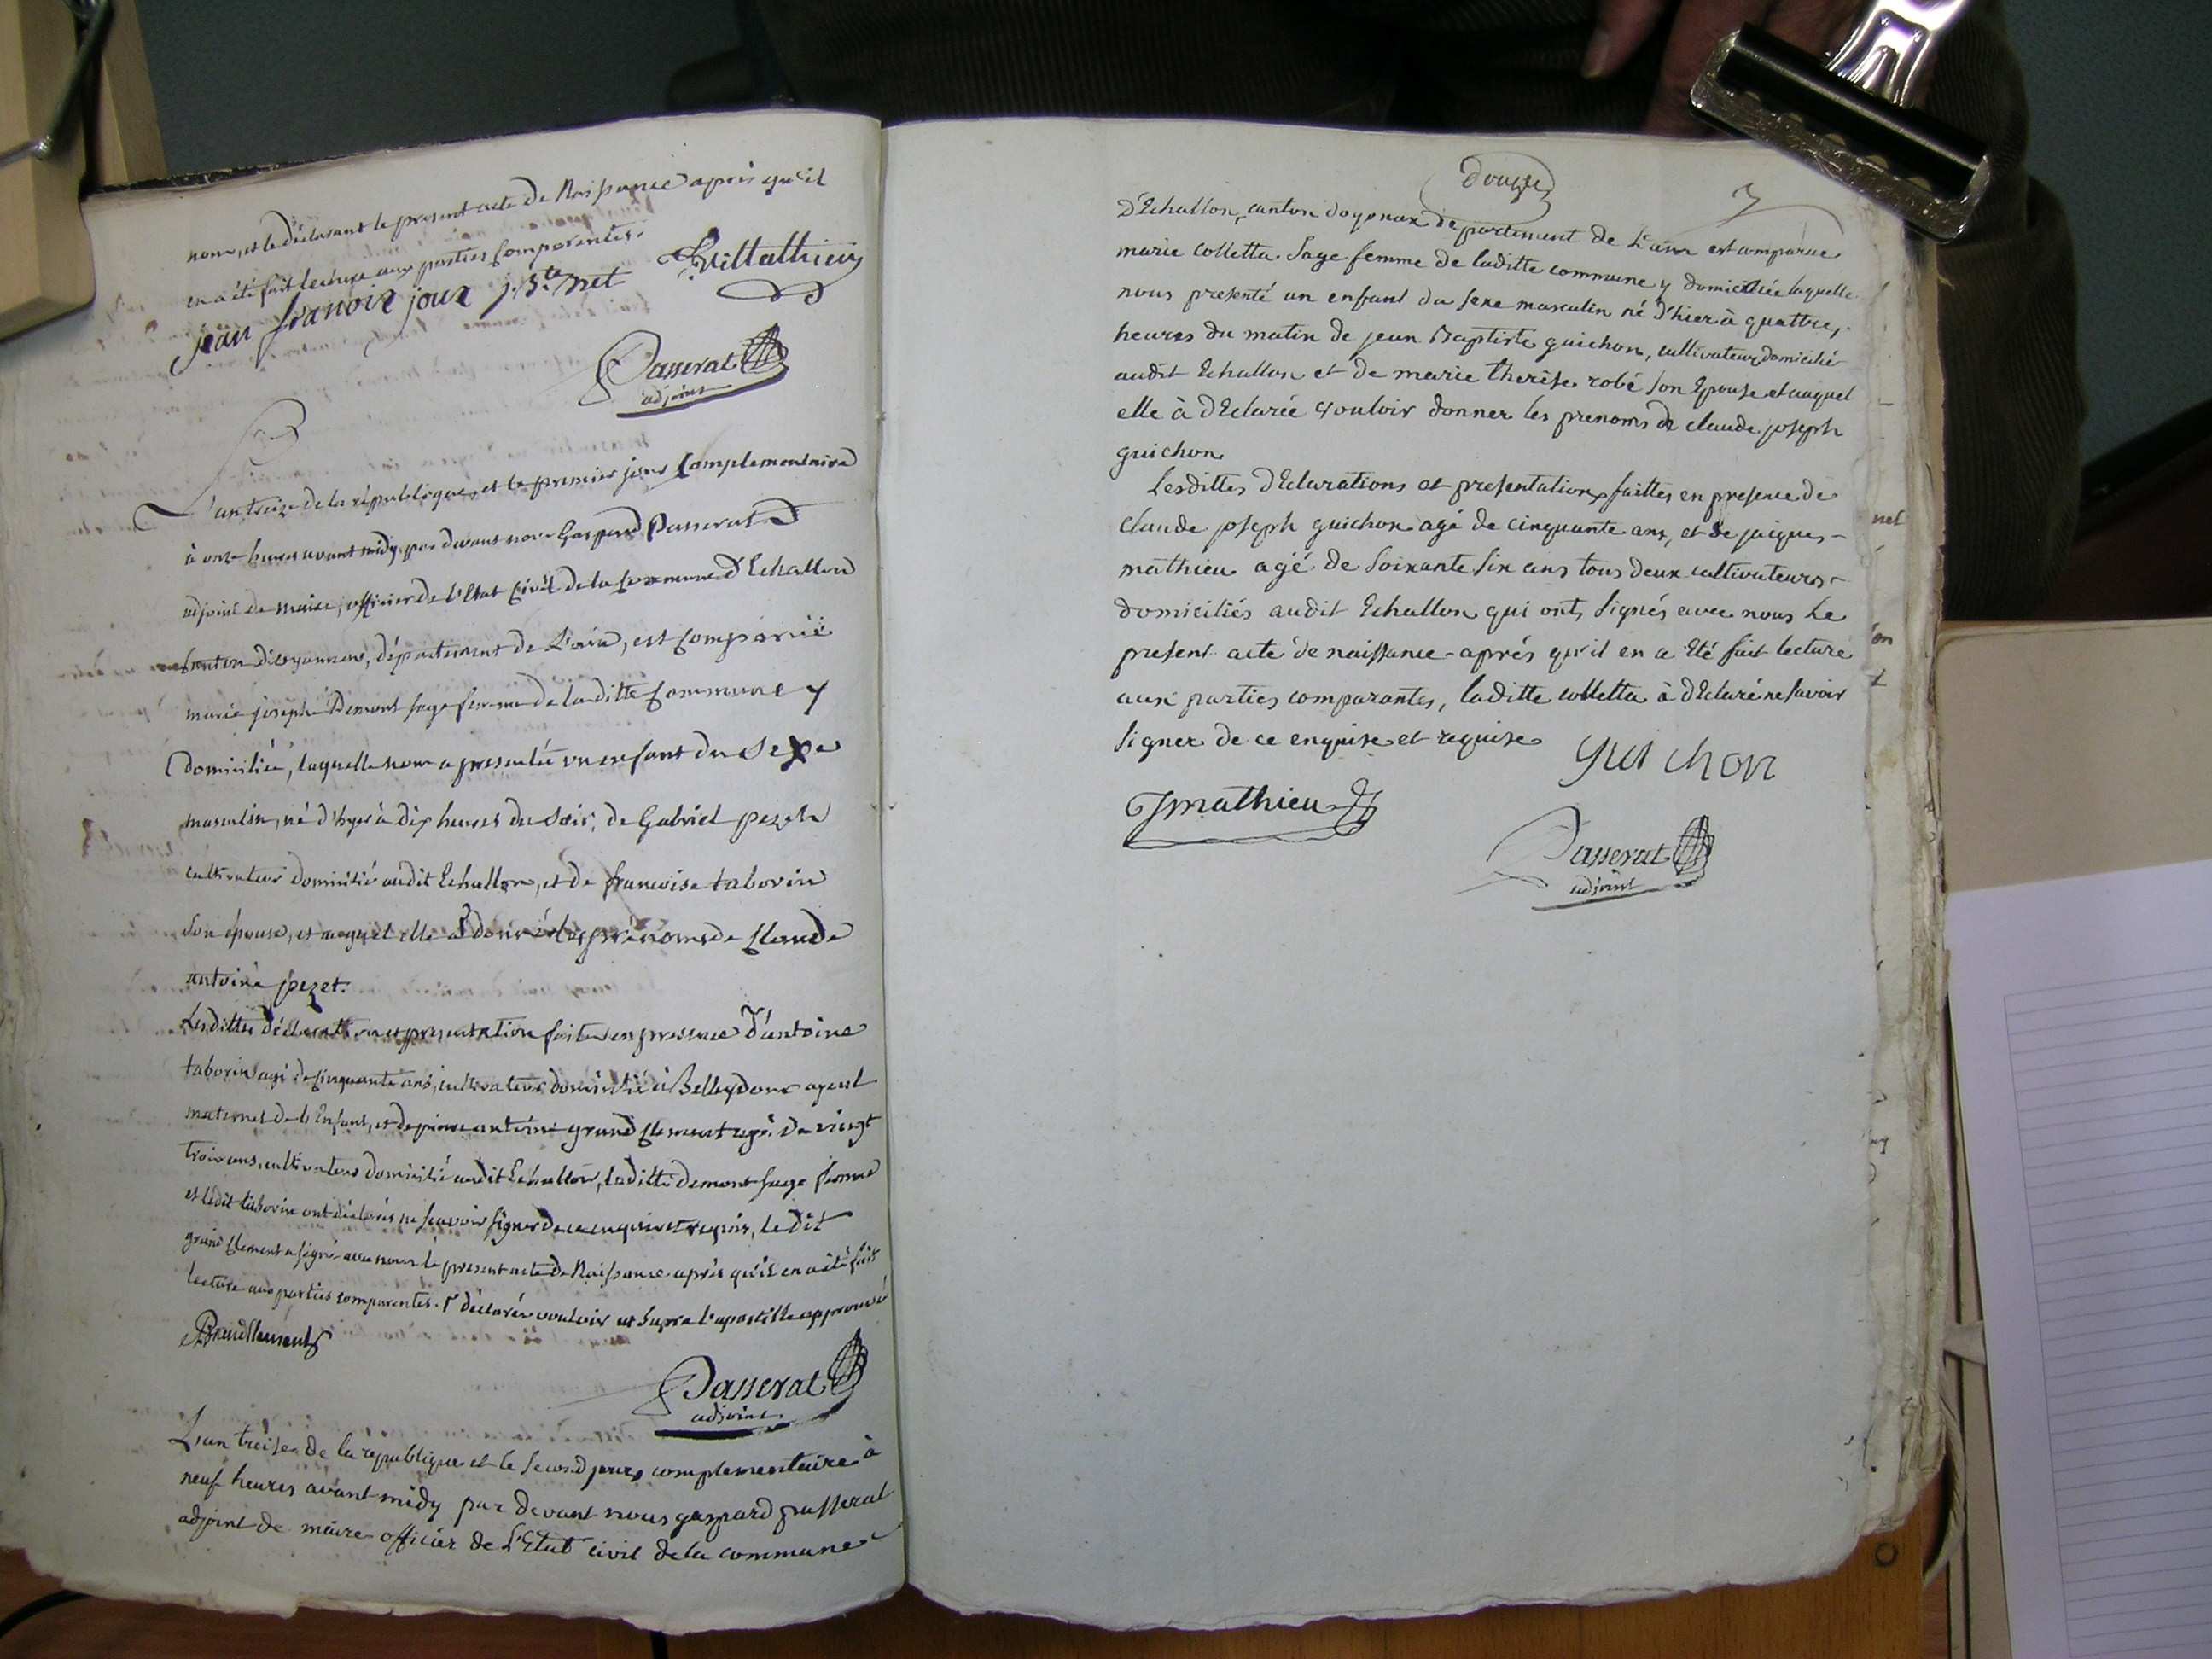 nous, et le déclarant le present acte de Naissance après qu'il
en a été fait lecture aux parties Comparentes.
jean franois joux j. B.te met Vuillathieu
Passerat
adjoint
L'an treize de la république, et le premier jour Complementaire
à onze heures avant midy, par devant nous Gaspard Passerat
adjoint de maire, officier de l'Etat Civil de la Commune d'Echallon
Canton d'oyonnax, département de L'ain, est Comparüe
marie joseph Demont sage femme de laditte Commune y
Domiciliée, laquelle nous a presenté un enfant du Sexe
masculin, né d'hyer à dix heures du Soir, de Gabriel pezet
cultivateur domicilié audit Echallon, et de francoise taborin
Son épouse, et auquel elle a donné les prénoms de Claude
antoine pezet.
Lesdittes déclaration et presentation faites en presence d'antoine
taborin agé de cinquante ans, cultivateur domicilié à Belleydoux ayeul
maternel de l'Enfant, et de pierre antoine grand Clement agé de vingt
trois ans, cultivateur domicilié audit Echallon, laditte demont sage femme
et ledit taborin ont déclarés ne sçavoir signer de ce enquis et requis, le dit
grand Clement a signé avec nous le present acte de Naissance après qu'il en a été fait
lecture aux parties comparentes. r déclarée vouloir ut supra l'apostille approuvé
Grandclement
Passerat
adjoint
L'an treise de la republique et le second jours complementaire à
neuf heures avant midy par devant nous gaspard passerat
adjoint de maire officier de L'Etat civil de la commune
douze
7
D'Echallon, canton doyonnax departement de L'ain est comparue
marie colletta Sage femme de laditte commune y domiciliée laquelle
nous presenté un enfant du sexe masculin né d'hier à quattres
heures du matin de jean Baptiste guichon, cultivateur domicilié
audit Echallon et de marie therèse robé son Epouse et auquel
elle à dEclarée vouloir donner les prenoms de claude joseph
guichon
Lesdittes dEclarations et presentations faittes en presence de
claude joseph guichon agé de cinquante ans, et de jaiques
mathieu agé de soixante six ans tous deux cultivateurs
domiciliés audit Echallon qui ont signés avec nous Le
present acte de naissance après qu'il en a Eté fait lecture
aux parties comparantes, laditte colletta à dEclaré ne savoir
signer de ce enquise et requise
guichon
J mathieu
Passerat
adjoint